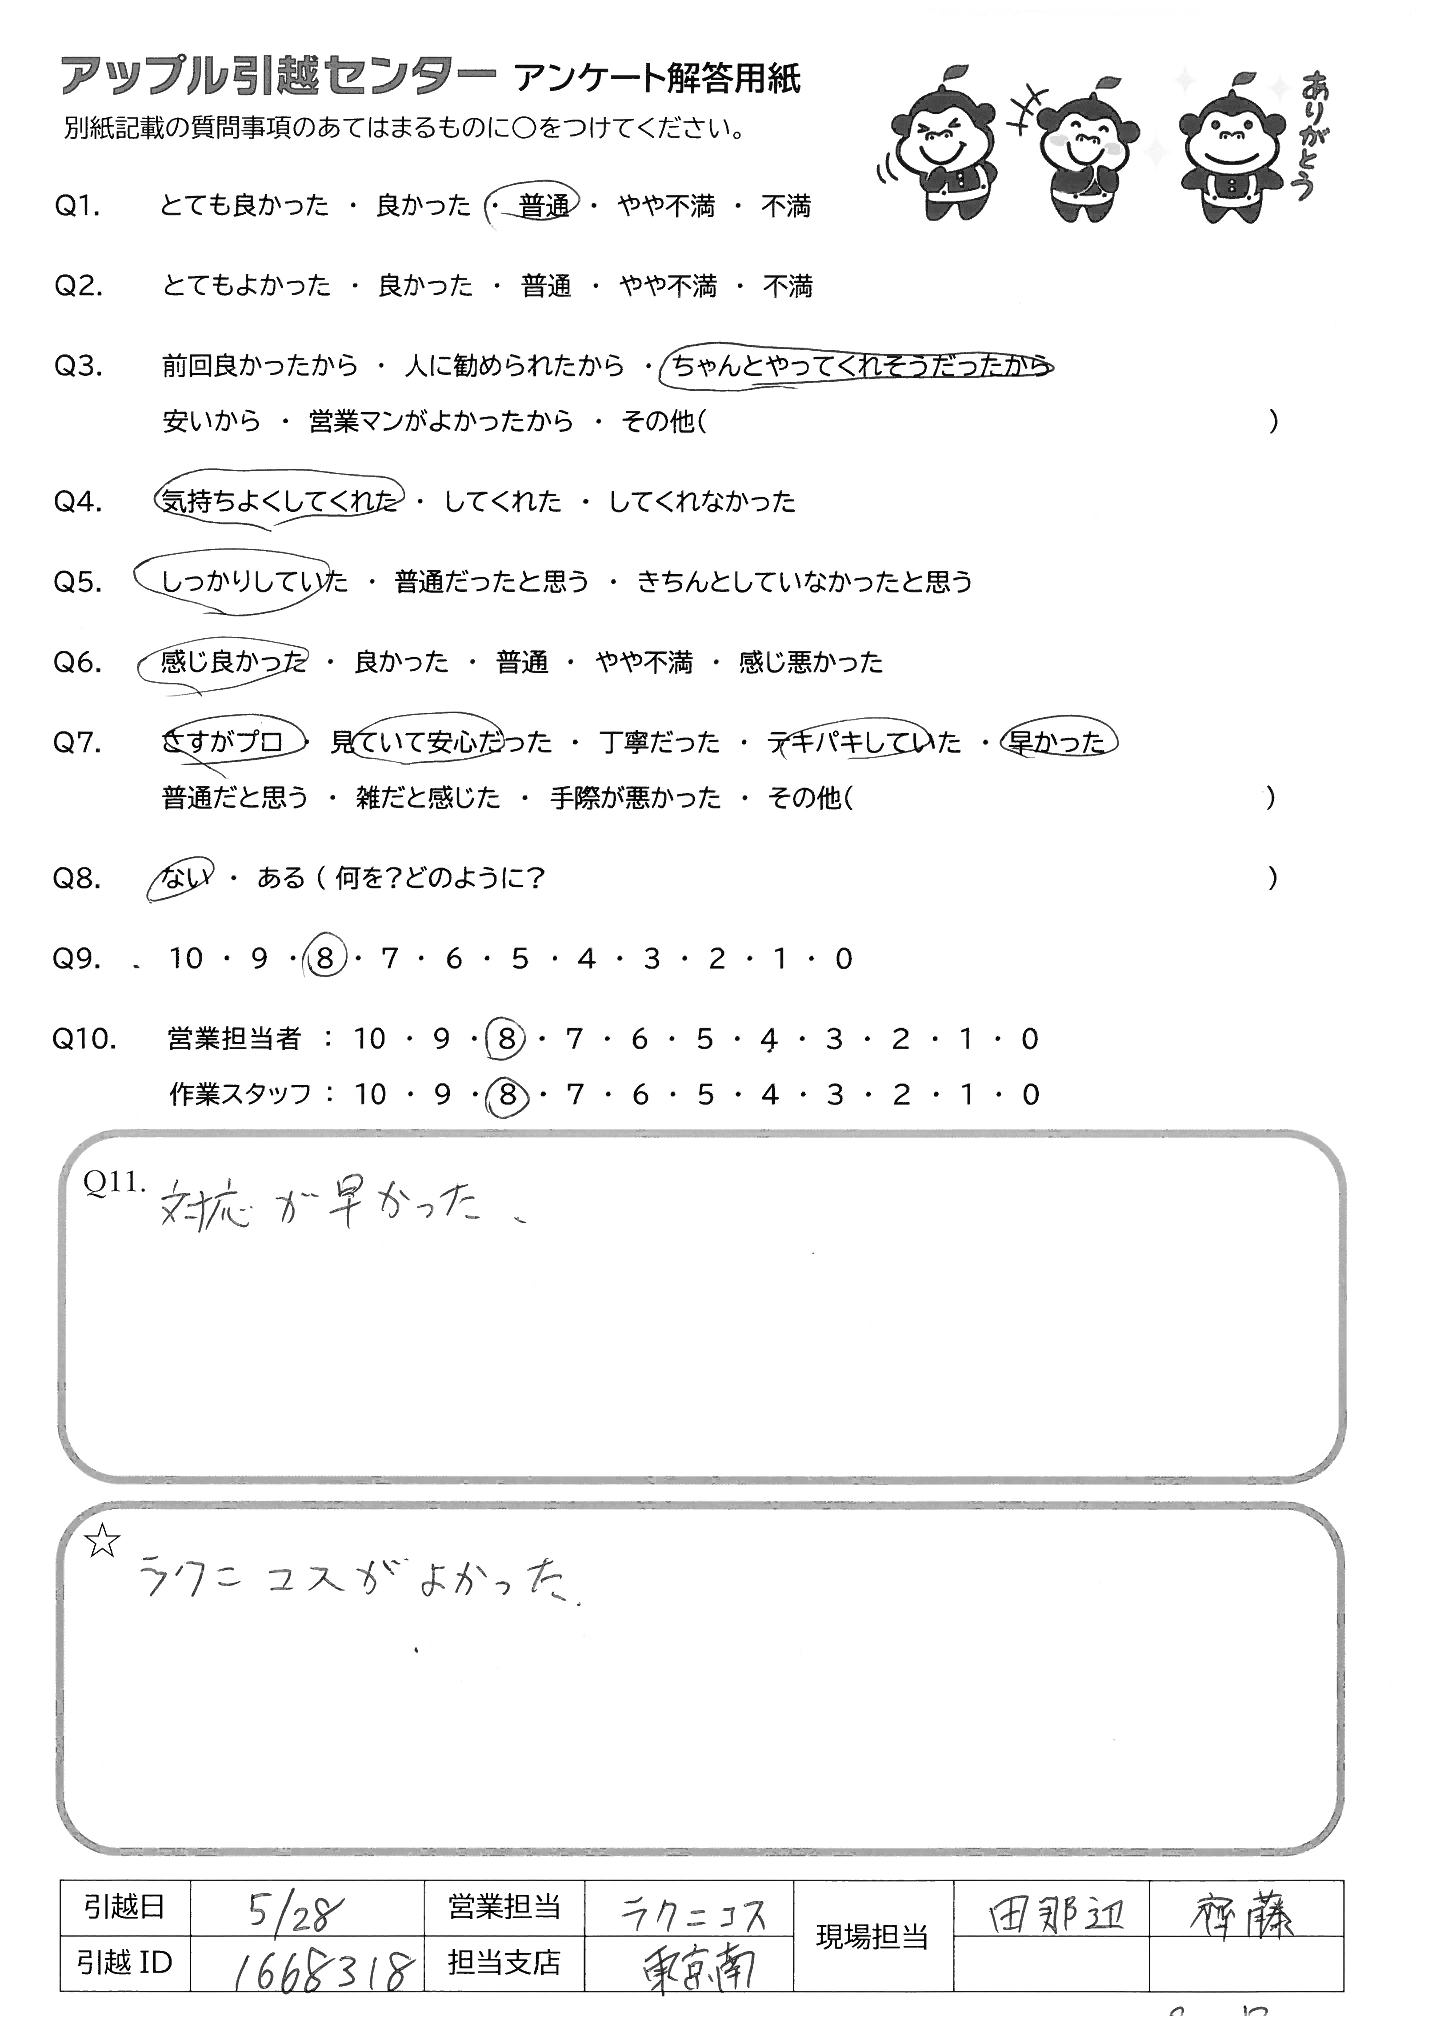 アップル引越センター アンケート解答用紙
別紙記載の質問事項のあてはまるものに○をつけてください。
ありがとう
Q1. とても良かった ・ 良かった ・ 普通 ・ やや不満 ・ 不満
Q2. とてもよかった ・ 良かった ・ 普通 ・ やや不満 ・ 不満
Q3. 前回良かったから ・ 人に勧められたから ・ ちゃんとやってくれそうだったから
安いから ・ 営業マンがよかったから ・ その他( )
Q4. 気持ちよくしてくれた ・ してくれた ・ してくれなかった
Q5. しっかりしていた ・ 普通だったと思う ・ きちんとしていなかったと思う
Q6. 感じ良かった ・ 良かった ・ 普通 ・ やや不満 ・ 感じ悪かった
Q7. さすがプロ ・ 見ていて安心だった ・ 丁寧だった ・ テキパキしていた ・ 早かった
普通だと思う ・ 雑だと感じた ・ 手際が悪かった ・ その他( )
Q8. ない ・ ある ( 何を?どのように? )
Q9. 10 ・ 9 ・ 8 ・ 7 ・ 6 ・ 5 ・ 4 ・ 3 ・ 2 ・ 1 ・ 0
Q10. 営業担当者 : 10 ・ 9 ・ 8 ・ 7 ・ 6 ・ 5 ・ 4 ・ 3 ・ 2 ・ 1 ・ 0
作業スタッフ : 10 ・ 9 ・ 8 ・ 7 ・ 6 ・ 5 ・ 4 ・ 3 ・ 2 ・ 1 ・ 0
Q11. 対応が早かった、
☆ ラクニコスがよかった.
引越日 5/28 営業担当 ラクニコス 現場担当 田那辺 齊藤
引越ID 1668318 担当支店 東京南